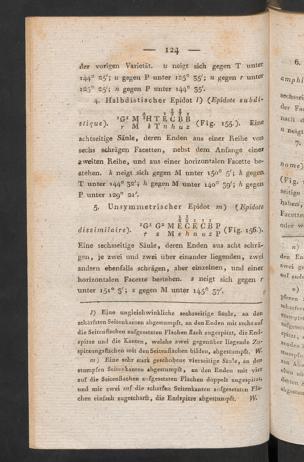 — 124 —
der vorigen Varietät. u neigt sich gegen T unter
144° 25'; u gegen P unter 125° 35'; n gegen r unter
125° 25'; n gegen P unter 144° 35'.
4. Halbdistischer Epidot l) (Epidote subdi-
stique). (Fig. 155.). Eine
r M k T n h u z
achtseitige Säule, deren Enden aus einer Reihe von
sechs schrägen Facetten, nebst dem Anfange einer
zweiten Reihe, und aus einer horizontalen Facette be-
stehen. k neigt sich gegen M unter 150° 5'; h gegen
T unter 144° 52'; h gegen M unter 140° 39'; h gegen
P unter 129° 21'.
5. Unsymmetrischer Epidot m) (Epidote
dissimilaire). (Fig. 156.).
r s M e h n u z P
Eine sechsseitige Säule, deren Enden aus acht schrä-
gen, je zwei und zwei über einander liegenden, zwei
andern ebenfalls schrägen, aber einzelnen, und einer
horizontalen Facette bestehen. s neigt sich gegen r
unter 151° 3'; s gegen M unter 145° 37'.
l) Eine ungleichwinkliche sechsseitige Säule, an den
schärfsten Seitenkanten abgestumpft, an den Enden mit sechs auf
die Seitenflächen aufgesetzten Flächen flach zugespitzt, die End-
spitze und die Kanten, welche zwei gegenüber liegende Zu-
spitzungsflächen mit den Seitenflächen bilden, abgestumpft. W.
m) Eine sehr stark geschobene vierseitige Säule, an den
stumpfen Seitenkanten abgestumpft, an den Enden mit vier
auf die Seitenflächen aufgesetzten Flächen doppelt zugespitzt,
und mit zwei auf die scharfen Seitenkanten aufgesetzten Flä-
chen einfach zugeschärft, die Endspitze abgestumpft. W.